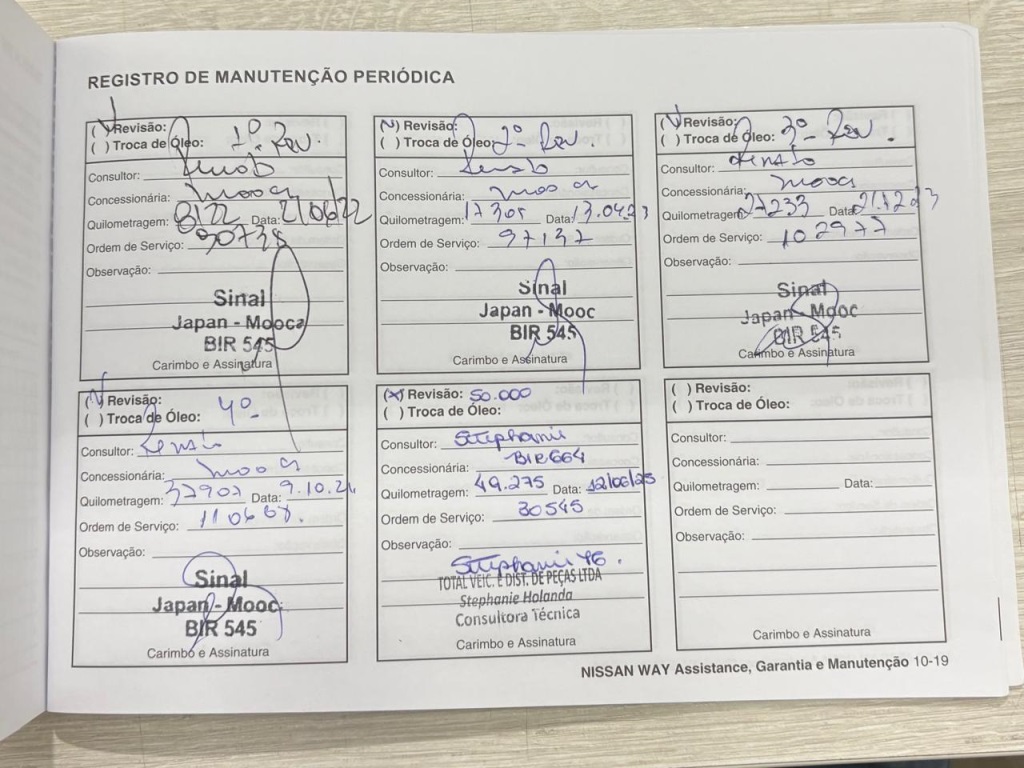 REGISTRO DE MANUTENÇÃO PERIÓDICA
(✓) Revisão: 1º Rev.
( ) Troca de Óleo:
Consultor:
Concessionária: Mooca
Quilometragem: 8122 Data: 21/06/22
Ordem de Serviço: 90735
Observação:
Sinal
Japan - Mooca
BIR 545
Carimbo e Assinatura
(✓) Revisão: 2º Rev.
( ) Troca de Óleo:
Consultor:
Concessionária: Mooca
Quilometragem: 17305 Data: 13.04.23
Ordem de Serviço: 97137
Observação:
Sinal
Japan - Mooc
BIR 545
Carimbo e Assinatura
(✓) Revisão: 3º Rev
( ) Troca de Óleo:
Consultor:
Concessionária: Mooca
Quilometragem: 27233 Data: 21.12.23
Ordem de Serviço: 102977
Observação:
Sinal
Japan - Mooc
BIR 545
Carimbo e Assinatura
(✓) Revisão: 4º
( ) Troca de Óleo:
Consultor:
Concessionária: Mooca
Quilometragem: 37907 Data: 9.10.24
Ordem de Serviço: 110668
Observação:
Sinal
Japan - Mooc
BIR 545
Carimbo e Assinatura
(x) Revisão: 50.000
( ) Troca de Óleo:
Consultor: Stephanie
Concessionária: BIR664
Quilometragem: 49.275 Data: 12/06/25
Ordem de Serviço: 30545
Observação:
Stephanie H.
TOTAL VEIC. E DIST. DE PEÇAS LTDA
Stephanie Holanda
Consultora Técnica
Carimbo e Assinatura
( ) Revisão:
( ) Troca de Óleo:
Consultor:
Concessionária:
Quilometragem: Data:
Ordem de Serviço:
Observação:
Carimbo e Assinatura
NISSAN WAY Assistance, Garantia e Manutenção 10-19